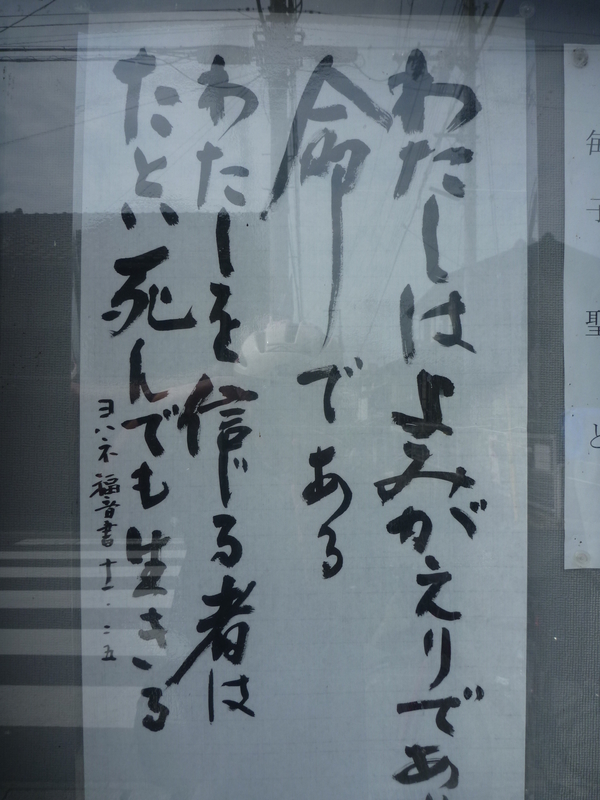 わたしはよみがえりであ
命である
わたしを信じる者は
たとい死んでも生きる
ヨハネ福音書十一・二五
毎
子
聖
と